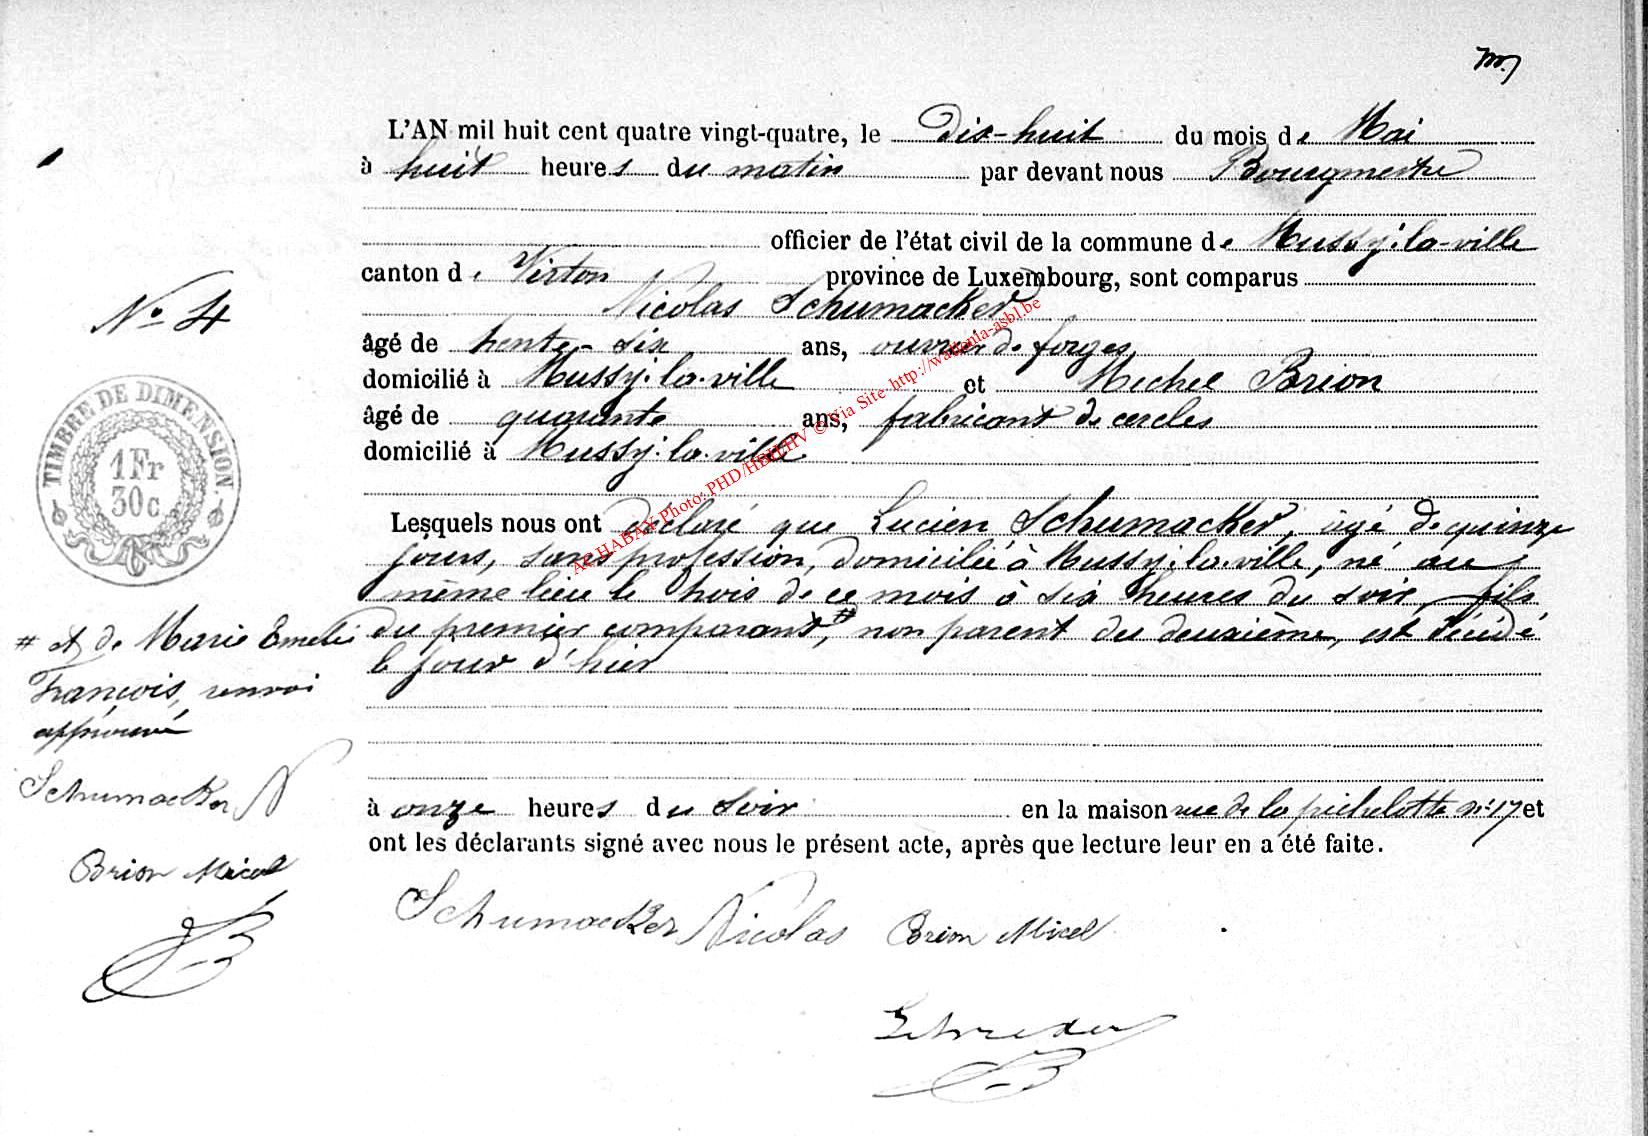 m
L'AN mil huit cent quatre vingt-quatre, le Dix-huit du mois de Mai
à huit heures du matin par devant nous Bourgmestre
officier de l'état civil de la commune de Mussy-la-ville
canton de Virton province de Luxembourg, sont comparus
Nicolas Schumacker
âgé de trente-six ans, ouvrier de forges
domicilié à Mussy-la-ville et Michel Brion
âgé de quarante ans, fabricant de cercles
domicilié à Mussy-la-ville
Lesquels nous ont déclaré que Lucien Schumacker, âgé de quinze
jours, sans profession, domicilié à Mussy-la-ville, né au
même lieu le trois de ce mois à six heures du soir, fils
du premier comparant,# non parent du deuxième, est décédé
le jour d'hier
à onze heures du soir en la maison rue de la pichelotte n° 17 et
ont les déclarants signé avec nous le présent acte, après que lecture leur en a été faite.
Schumacker Nicolas Brion Micel
N° 4
TIMBRE DE DIMENSION
1 Fr
30 c
# et de Marie Emelie
François, renvoi
approuvé
Schumacker N
Brion Micel
AC HABAY Photo: PHD/HBH/HV © Via Site -http://wallonia-asbl.be